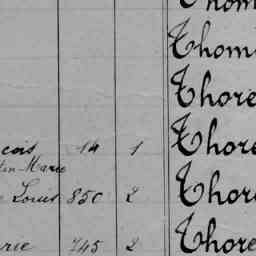 Thom
Thom
Thore
cois 14 1 Thore
tin Marie
Louis 850 2 Thore
rie 745 2 Thore